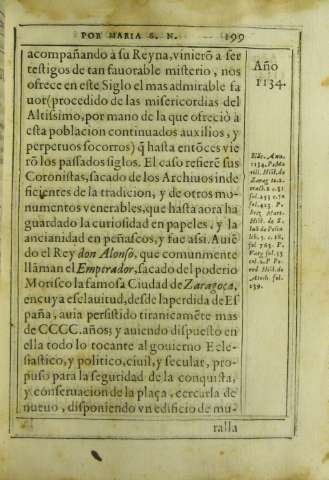 POR MARIA S. N. 199
acompañando à su Reyna, vinierõ a ser
testigos de tan fauorable misterio, nos
ofrece en este Siglo el mas admirable fa
uor (procedido de las misericordias del
Altissimo, por mano de la que ofreciò a
esta poblacion continuados auxilios, y
perpetuos socorros) q̃ hasta entõces vie
rõ los passados siglos. El caso refierẽ sus
Coronistas, sacado de los Archiuos inde
ficientes de la tradicion, y de otros mo-
numentos venerables, que hasta aora ha
guardado la curiosidad en papeles, y la
ancianidad en peñascos, y fue assi. Auiẽ
do el Rey don Alonso, que comunmente
llàman el Emperador, sacado del poderio
Morisco la famosa Ciudad de Zaragoça,
en cuya esclauitud, desde la perdida de Es
paña, auia persistido tiranicamẽte mas
de CCCC. años; y auiendo dispuesto en
ella todo lo tocante al gouierno Ecle-
siastico, y politico, ciuil, y secular, pro-
puso para la seguridad de la conquista,
y conseruacion de la plaça, cercarla de
nueuo, disponiendo vn edificio de mu-
ralla
Año
1134.
1134. P. Mu
rill. Hist. de
Zarag to. 2.
trach. 2 c. 31
fol. 253 c. 50
fol. 413. P.
Briz Mart.
Hist. de S.
Iuã de Peña
lib. 5. c. 18.
fol. 783. P.
Hist. de
fol.
239.